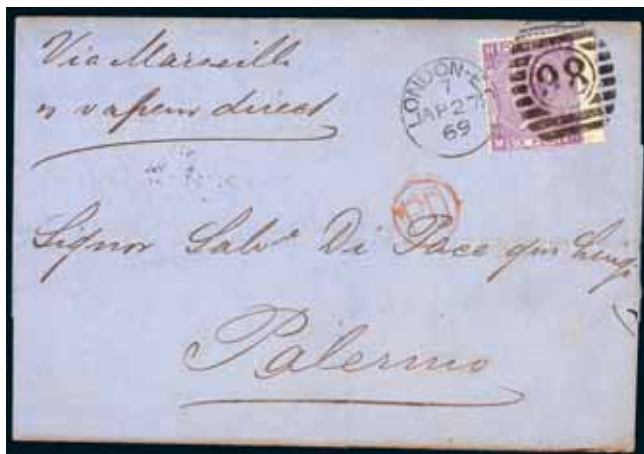 Via Marseille
vapeur direct
LONDON-E
7
AP 27
69
98
PD
Signor Salv.e Di Pace
Palermo